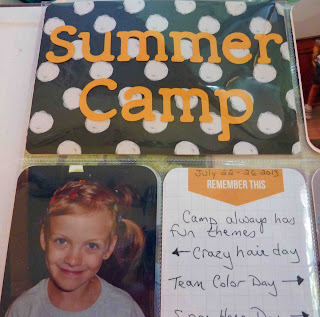 Summer
Camp
July 22-26 2013
REMEMBER THIS
Camp always has
fun themes
← Crazy hair day
Team Color Day →